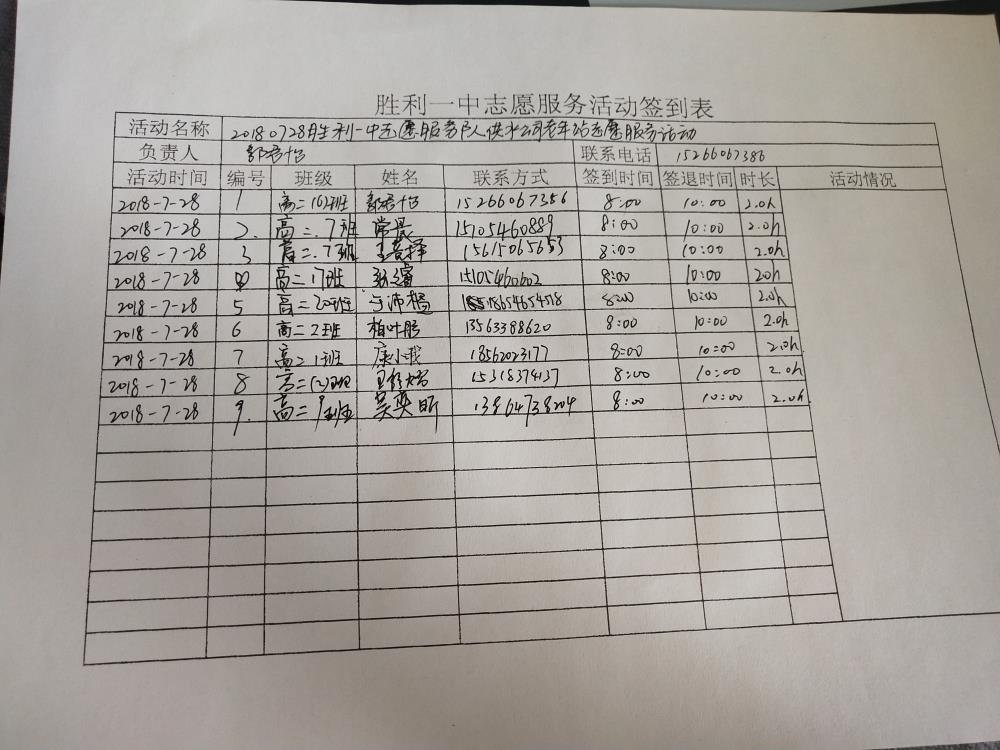 胜利一中志愿服务活动签到表
活动名称 20180728胜利一中志愿服务队供水公司老年站志愿服务活动
负责人 郭君怡 联系电话 15266067386
活动时间 编号 班级 姓名 联系方式 签到时间 签退时间 时长 活动情况
2018-7-28 1 高二16班 郭君怡 15266067356 8:00 10:00 2.0h
2018-7-28 2. 高二.7班 常晨 15105460889 8:00 10:00 2.0h
2018-7-28 3 高二.7班 15615065653 8:00 10:00 2.0h
2018-7-28 高二17班 15105460602 8:00 10:00 2.0h
2018-7-28 5 高二20班 于沛橘 8:00 10:00 2.0h
2018-7-28 6 高二2班 柏叶彤 13563398620 8:00 10:00 2.0h
2018-7-28 7 高二1班 康小戢 18562023177 8:00 10:00 2.0h
2018-7-28 8 高二 15318374137 8:00 10:00 2.0h
2018-7-28 9. 高二 吴奕昕 13864738204 8:00 10:00 2.0h